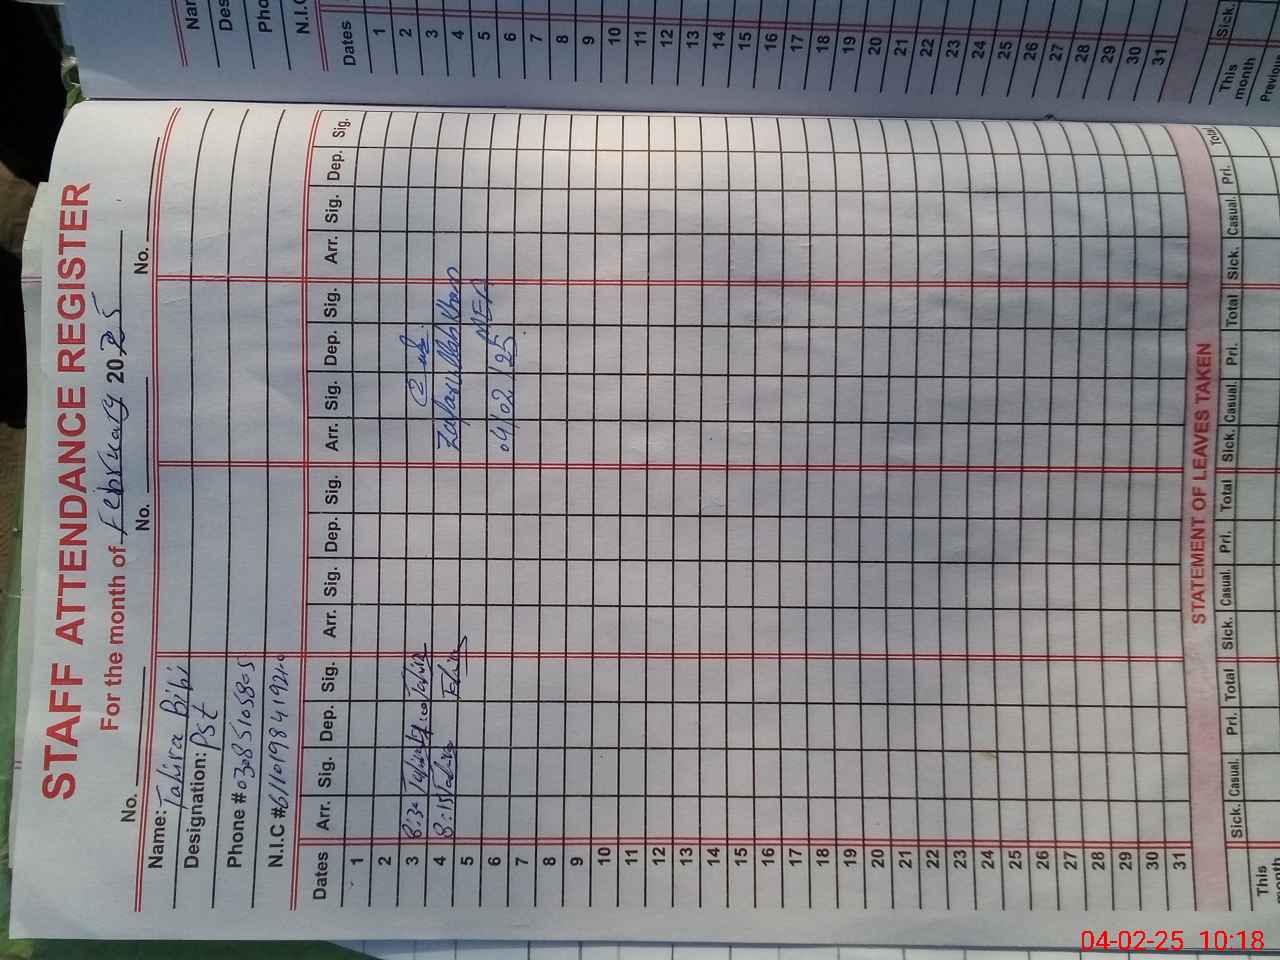 STAFF ATTENDANCE REGISTER
For the month of February 2025
No. No. No. No.
Name: Tahira Bibi
Designation: PST
Phone # 03085105805
N.I.C #
Dates Arr. Sig. Dep. Sig. Arr. Sig. Dep. Sig. Arr. Sig. Dep. Sig. Arr. Sig. Dep. Sig.
1
2
3 8:30 Tahira Tahira
4 8:15 Tahira Tahira Zafarullah Khan
5
6 04/02/25 MEA
7
8
9
10
11
12
13
14
15
16
17
18
19
20
21
22
23
24
25
26
27
28
29
30
31
STATEMENT OF LEAVES TAKEN
Sick. Casual. Pri. Total Sick. Casual. Pri. Total Sick. Casual. Pri. Total Sick. Casual. Pri. Total
This month
Dates
1
2
3
4
5
6
7
8
9
10
11
12
13
14
15
16
17
18
19
20
21
22
23
24
25
26
27
28
29
30
31
Sick.
This month
Previous
04-02-25 10:18